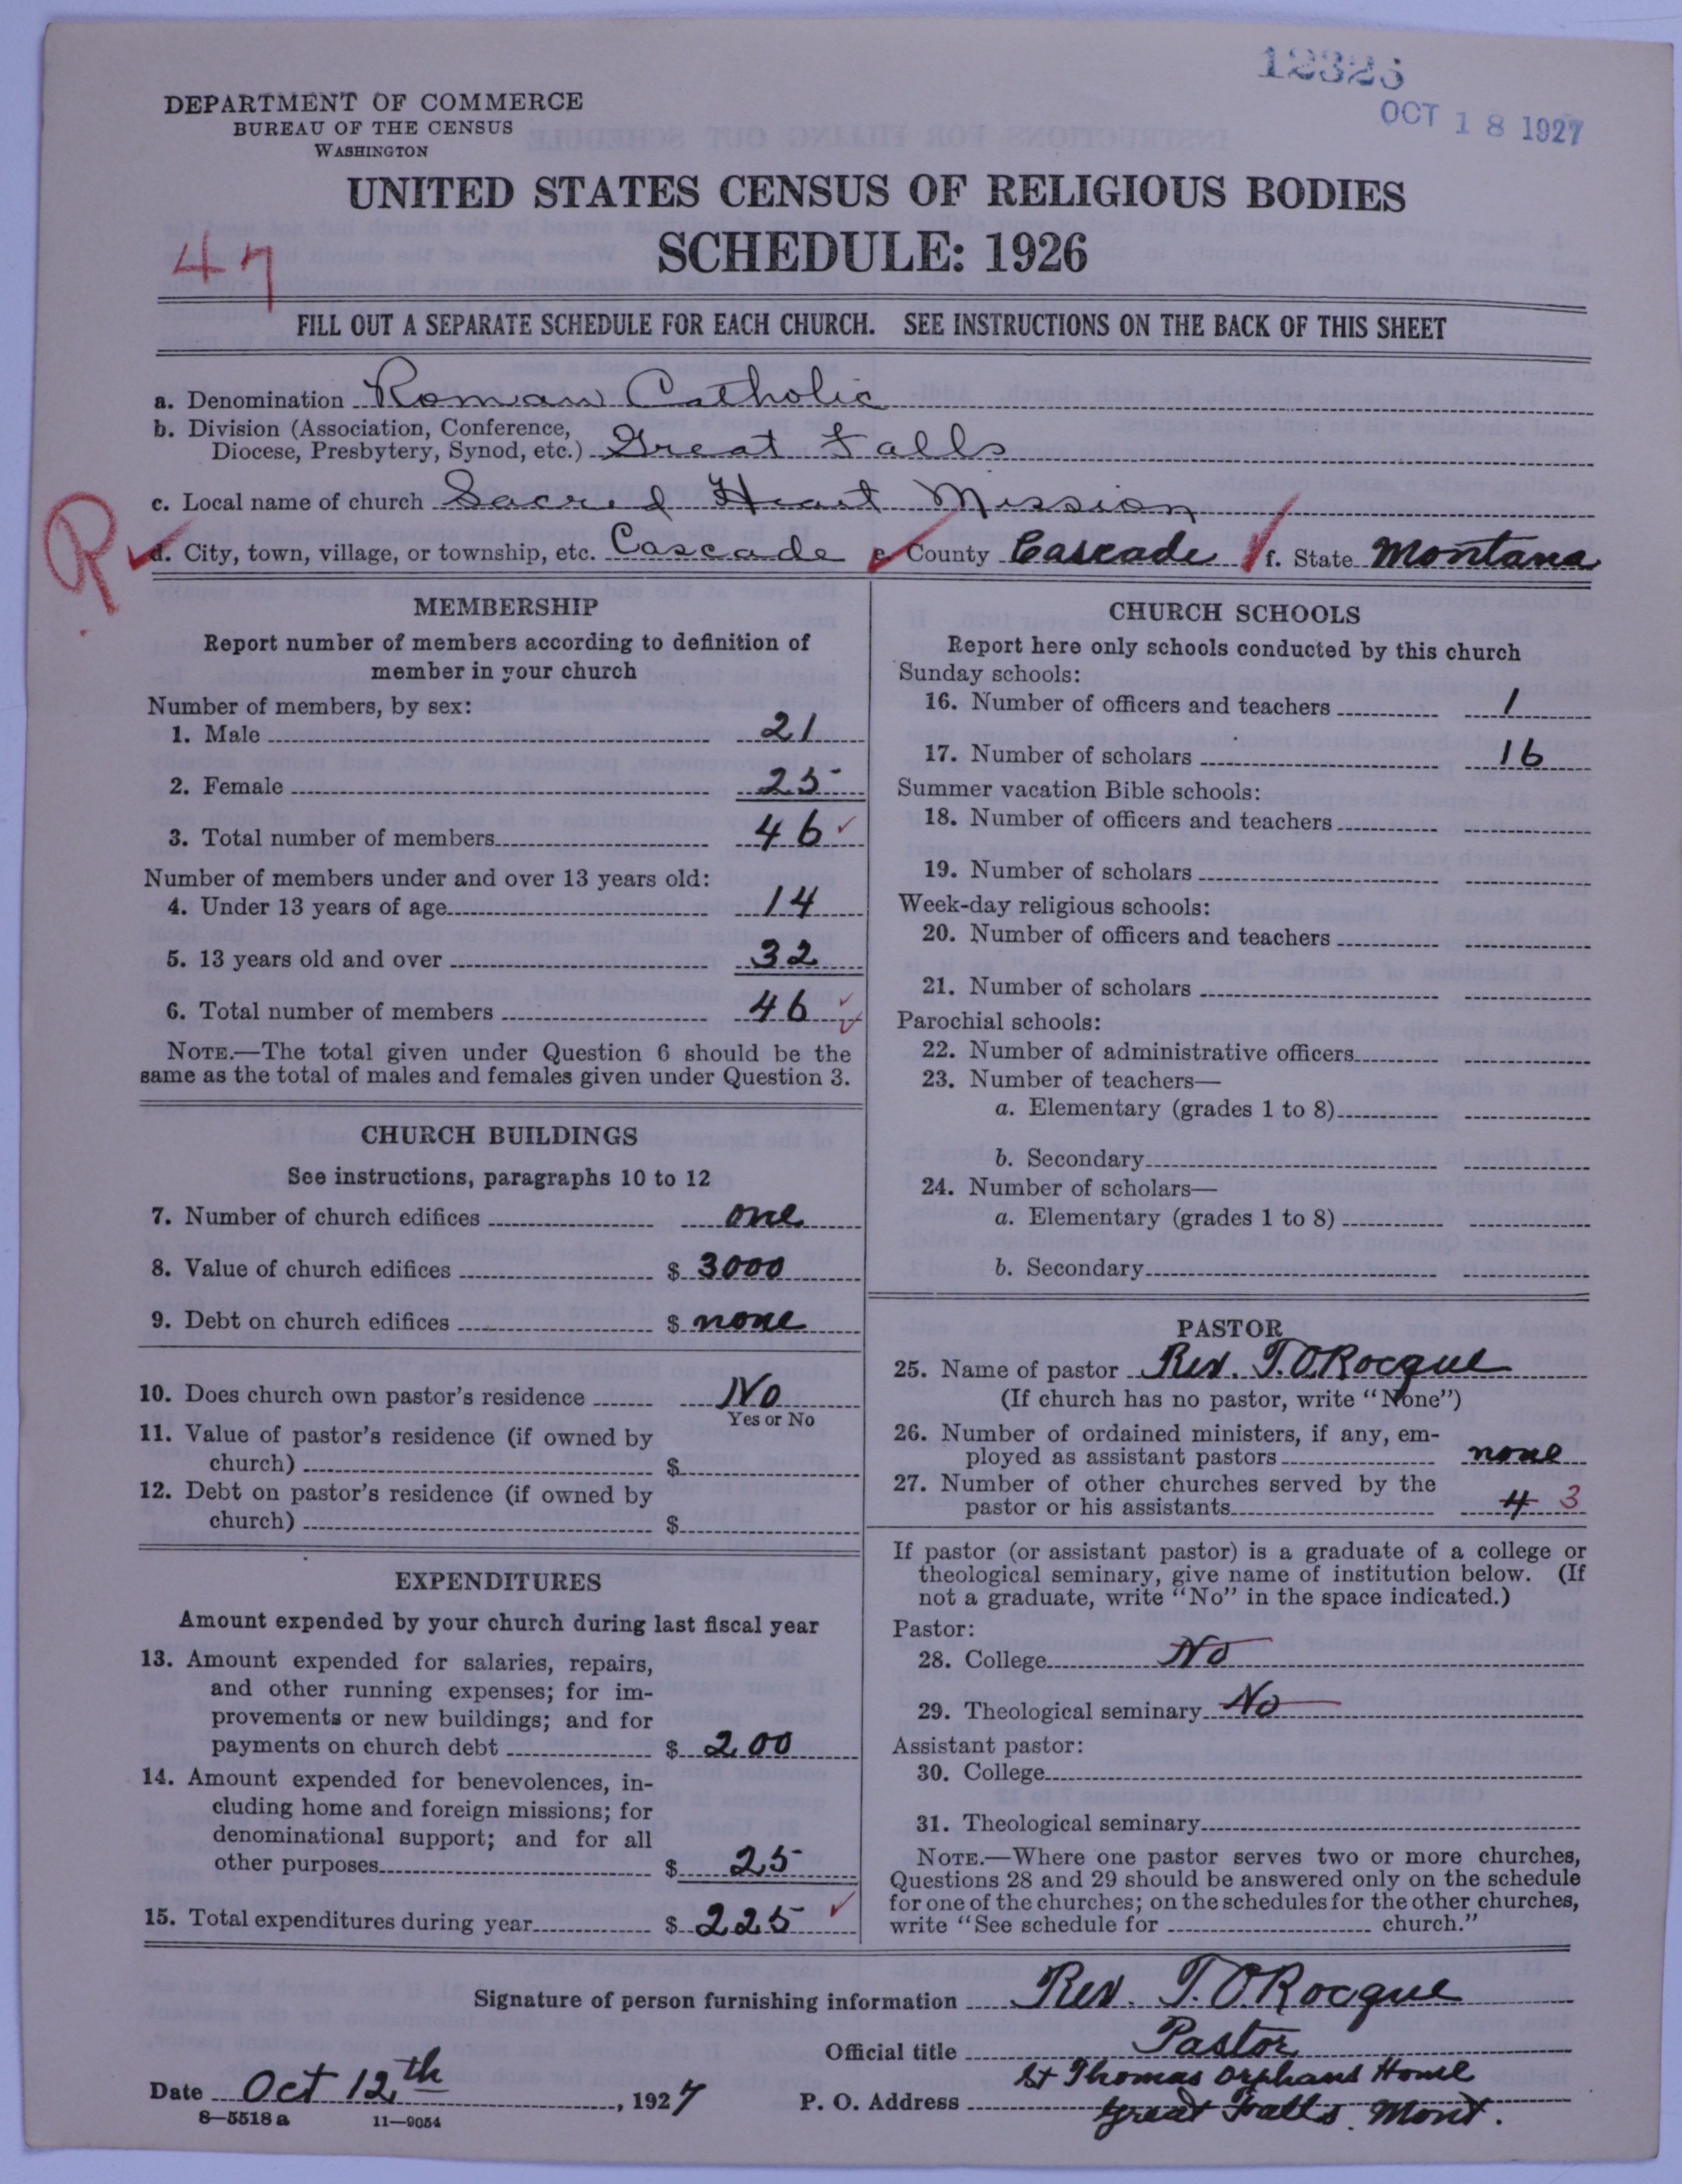 12325
OCT 18 1927
DEPARTMENT OF COMMERCE
BUREAU OF THE CENSUS
WASHINGTON
UNITED STATES CENSUS OF RELIGIOUS BODIES
SCHEDULE: 1926
47
FILL OUT A SEPARATE SCHEDULE FOR EACH CHURCH. SEE INSTRUCTIONS ON THE BACK OF THIS SHEET
a. Denomination Roman Catholic
b. Division (Association, Conference,
Diocese, Presbytery, Synod, etc.) Great Falls
c. Local name of church Sacred Heart Mission
R
d. City, town, village, or township, etc. Cascade e. County Cascade f. State Montana
MEMBERSHIP
Report number of members according to definition of
member in your church
Number of members, by sex:
1. Male 21
2. Female 25
3. Total number of members 46 ✓
Number of members under and over 13 years old:
4. Under 13 years of age 14
5. 13 years old and over 32
6. Total number of members 46 ✓ ✓
NOTE.—The total given under Question 6 should be the
same as the total of males and females given under Question 3.
CHURCH BUILDINGS
See instructions, paragraphs 10 to 12
7. Number of church edifices one
8. Value of church edifices $ 3000
9. Debt on church edifices $ none
10. Does church own pastor's residence No
Yes or No
11. Value of pastor's residence (if owned by
church) $
12. Debt on pastor's residence (if owned by
church) $
EXPENDITURES
Amount expended by your church during last fiscal year
13. Amount expended for salaries, repairs,
and other running expenses; for im-
provements or new buildings; and for
payments on church debt $ 200
14. Amount expended for benevolences, in-
cluding home and foreign missions; for
denominational support; and for all
other purposes $ 25
15. Total expenditures during year $ 225 ✓
CHURCH SCHOOLS
Report here only schools conducted by this church
Sunday schools:
16. Number of officers and teachers 1
17. Number of scholars 16
Summer vacation Bible schools:
18. Number of officers and teachers
19. Number of scholars
Week-day religious schools:
20. Number of officers and teachers
21. Number of scholars
Parochial schools:
22. Number of administrative officers
23. Number of teachers—
a. Elementary (grades 1 to 8)
b. Secondary
24. Number of scholars—
a. Elementary (grades 1 to 8)
b. Secondary
PASTOR
25. Name of pastor Rev. T. O. Rocque
(If church has no pastor, write "None")
26. Number of ordained ministers, if any, em-
ployed as assistant pastors none
27. Number of other churches served by the
pastor or his assistants 4 3
If pastor (or assistant pastor) is a graduate of a college or
theological seminary, give name of institution below. (If
not a graduate, write "No" in the space indicated.)
Pastor:
28. College No
29. Theological seminary No
Assistant pastor:
30. College
31. Theological seminary
NOTE.—Where one pastor serves two or more churches,
Questions 28 and 29 should be answered only on the schedule
for one of the churches; on the schedules for the other churches,
write "See schedule for church."
Signature of person furnishing information Rev. T. O. Rocque
Official title Pastor
Date Oct 12th, 1927 P. O. Address St Thomas Orphans Home
Great Falls. Mont.
8—5518 a 11—9054